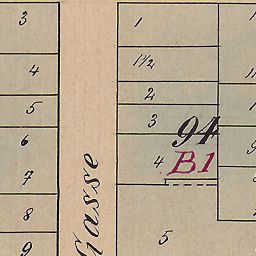 3
4
5
6
7
8
9
Gasse
1
1 1/2
2
3
4
5
94
B1